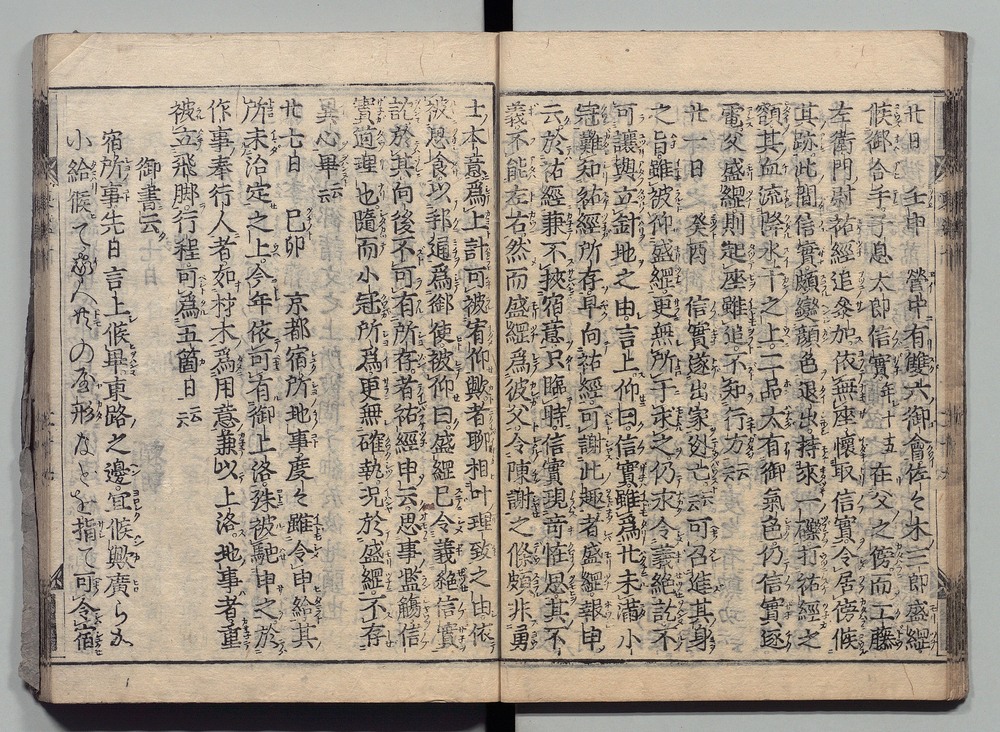 廿日　壬申　營中有雙六御會佐々木三郎盛綱
候御合手子息太郎信實年十五在父之傍而工藤
左衛門尉祐經追參加依無座懷取信實令居傍候
其跡此間信實頗變顔色退出持來一礫打祐經之
額其血流降水干之上二品太有御氣色仍信實逐
電父盛綱則起座雖追不知行方云云
廿一日　癸酉　信實遂出家逃亡云云可召進其身
之旨雖被仰盛綱更無所于求之仍永令義絶訖不
可讓與立針地之由言上仰曰信實雖爲廿未滿小
冠難知祐經所存早向祐經可謝此趣者盛綱報申
云於祐經兼不挾宿意只臨時信實現奇恠思其不
義不能左右然而盛綱爲彼父令陳謝之條頗非勇
士本意爲上計可被宥仰歟者聊相叶理致之由依
被思食以邦通爲御使被仰曰盛綱已令義絶信實
訖於其向後不可有所存者祐經申云思事濫觴信
實道理也隨而小冠所爲更無確執况於盛綱不存
異心畢云云
廿七日　己卯　京都宿所地事度々雖令申給其
所未治定之上今年依可有御上洛殊被馳申之於
作事奉行人者如材木爲用意兼以上洛地事者重
被立飛脚行程可爲五箇日云云
御書云
宿所事先日言上候畢東路之邊宜候歟廣らか
小給候て人々のや形なとを指て可令宿